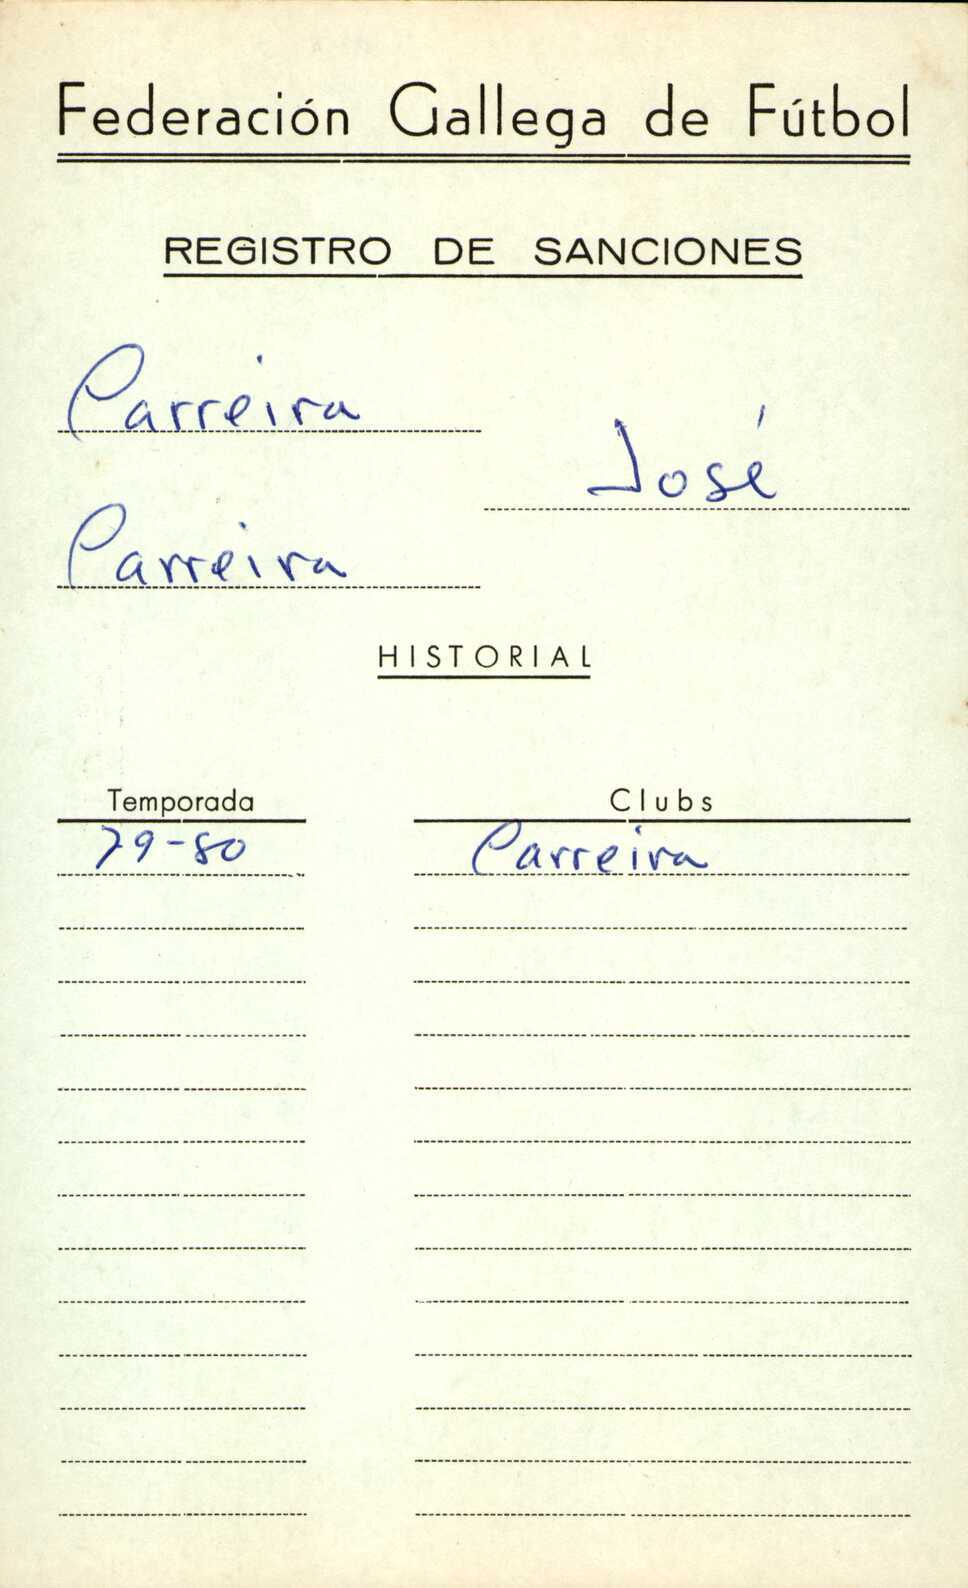 Federación Gallega de Fútbol
REGISTRO DE SANCIONES
Carreira
José
Carreira
HISTORIAL
Temporada Clubs
79-80 Carreira